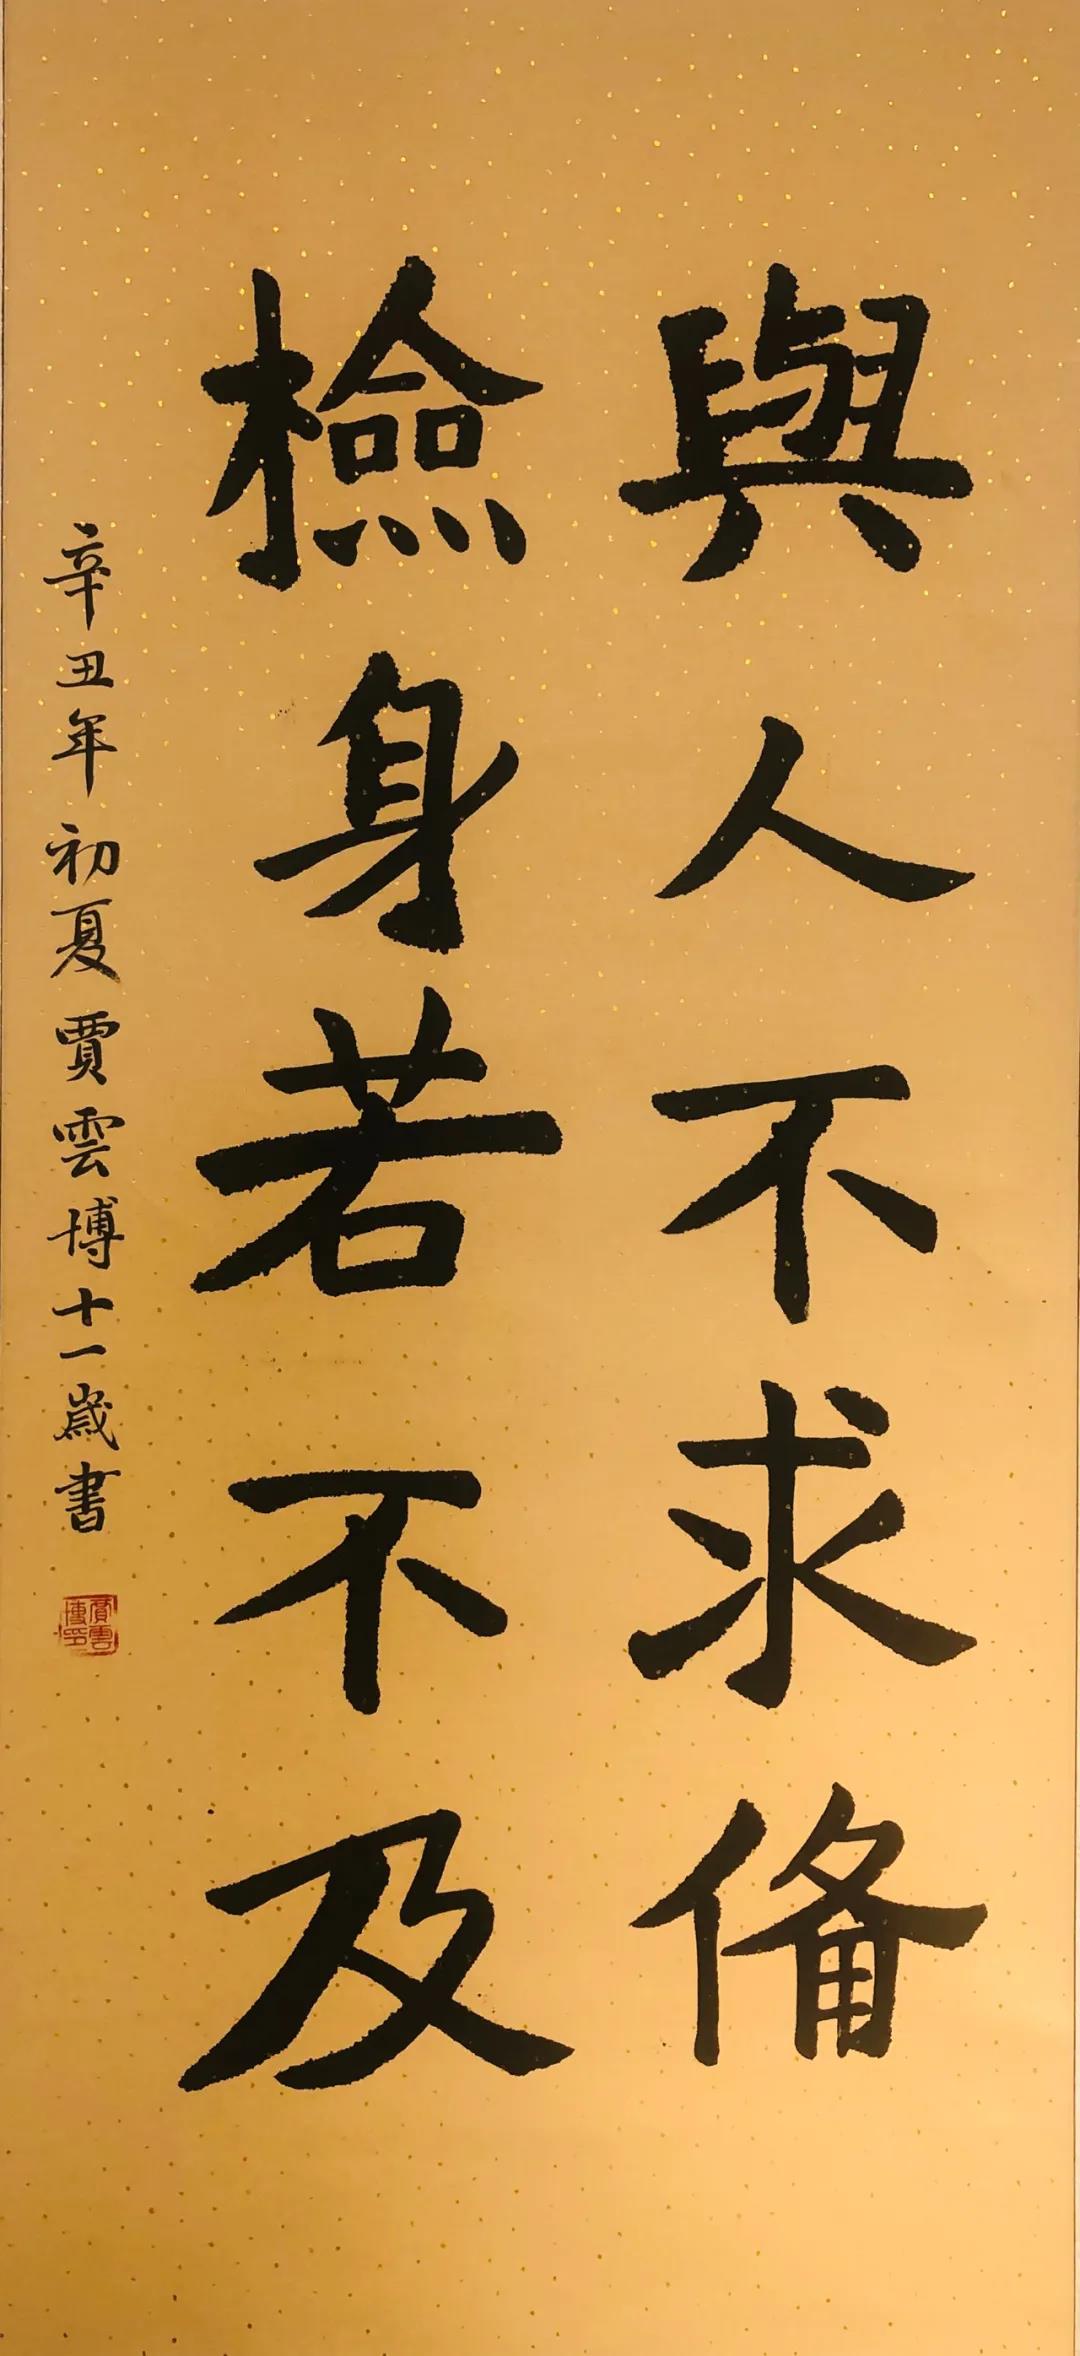 與人不求俻
檢身若不及
辛丑年初夏賈雲博十一歲書
賈雲博印